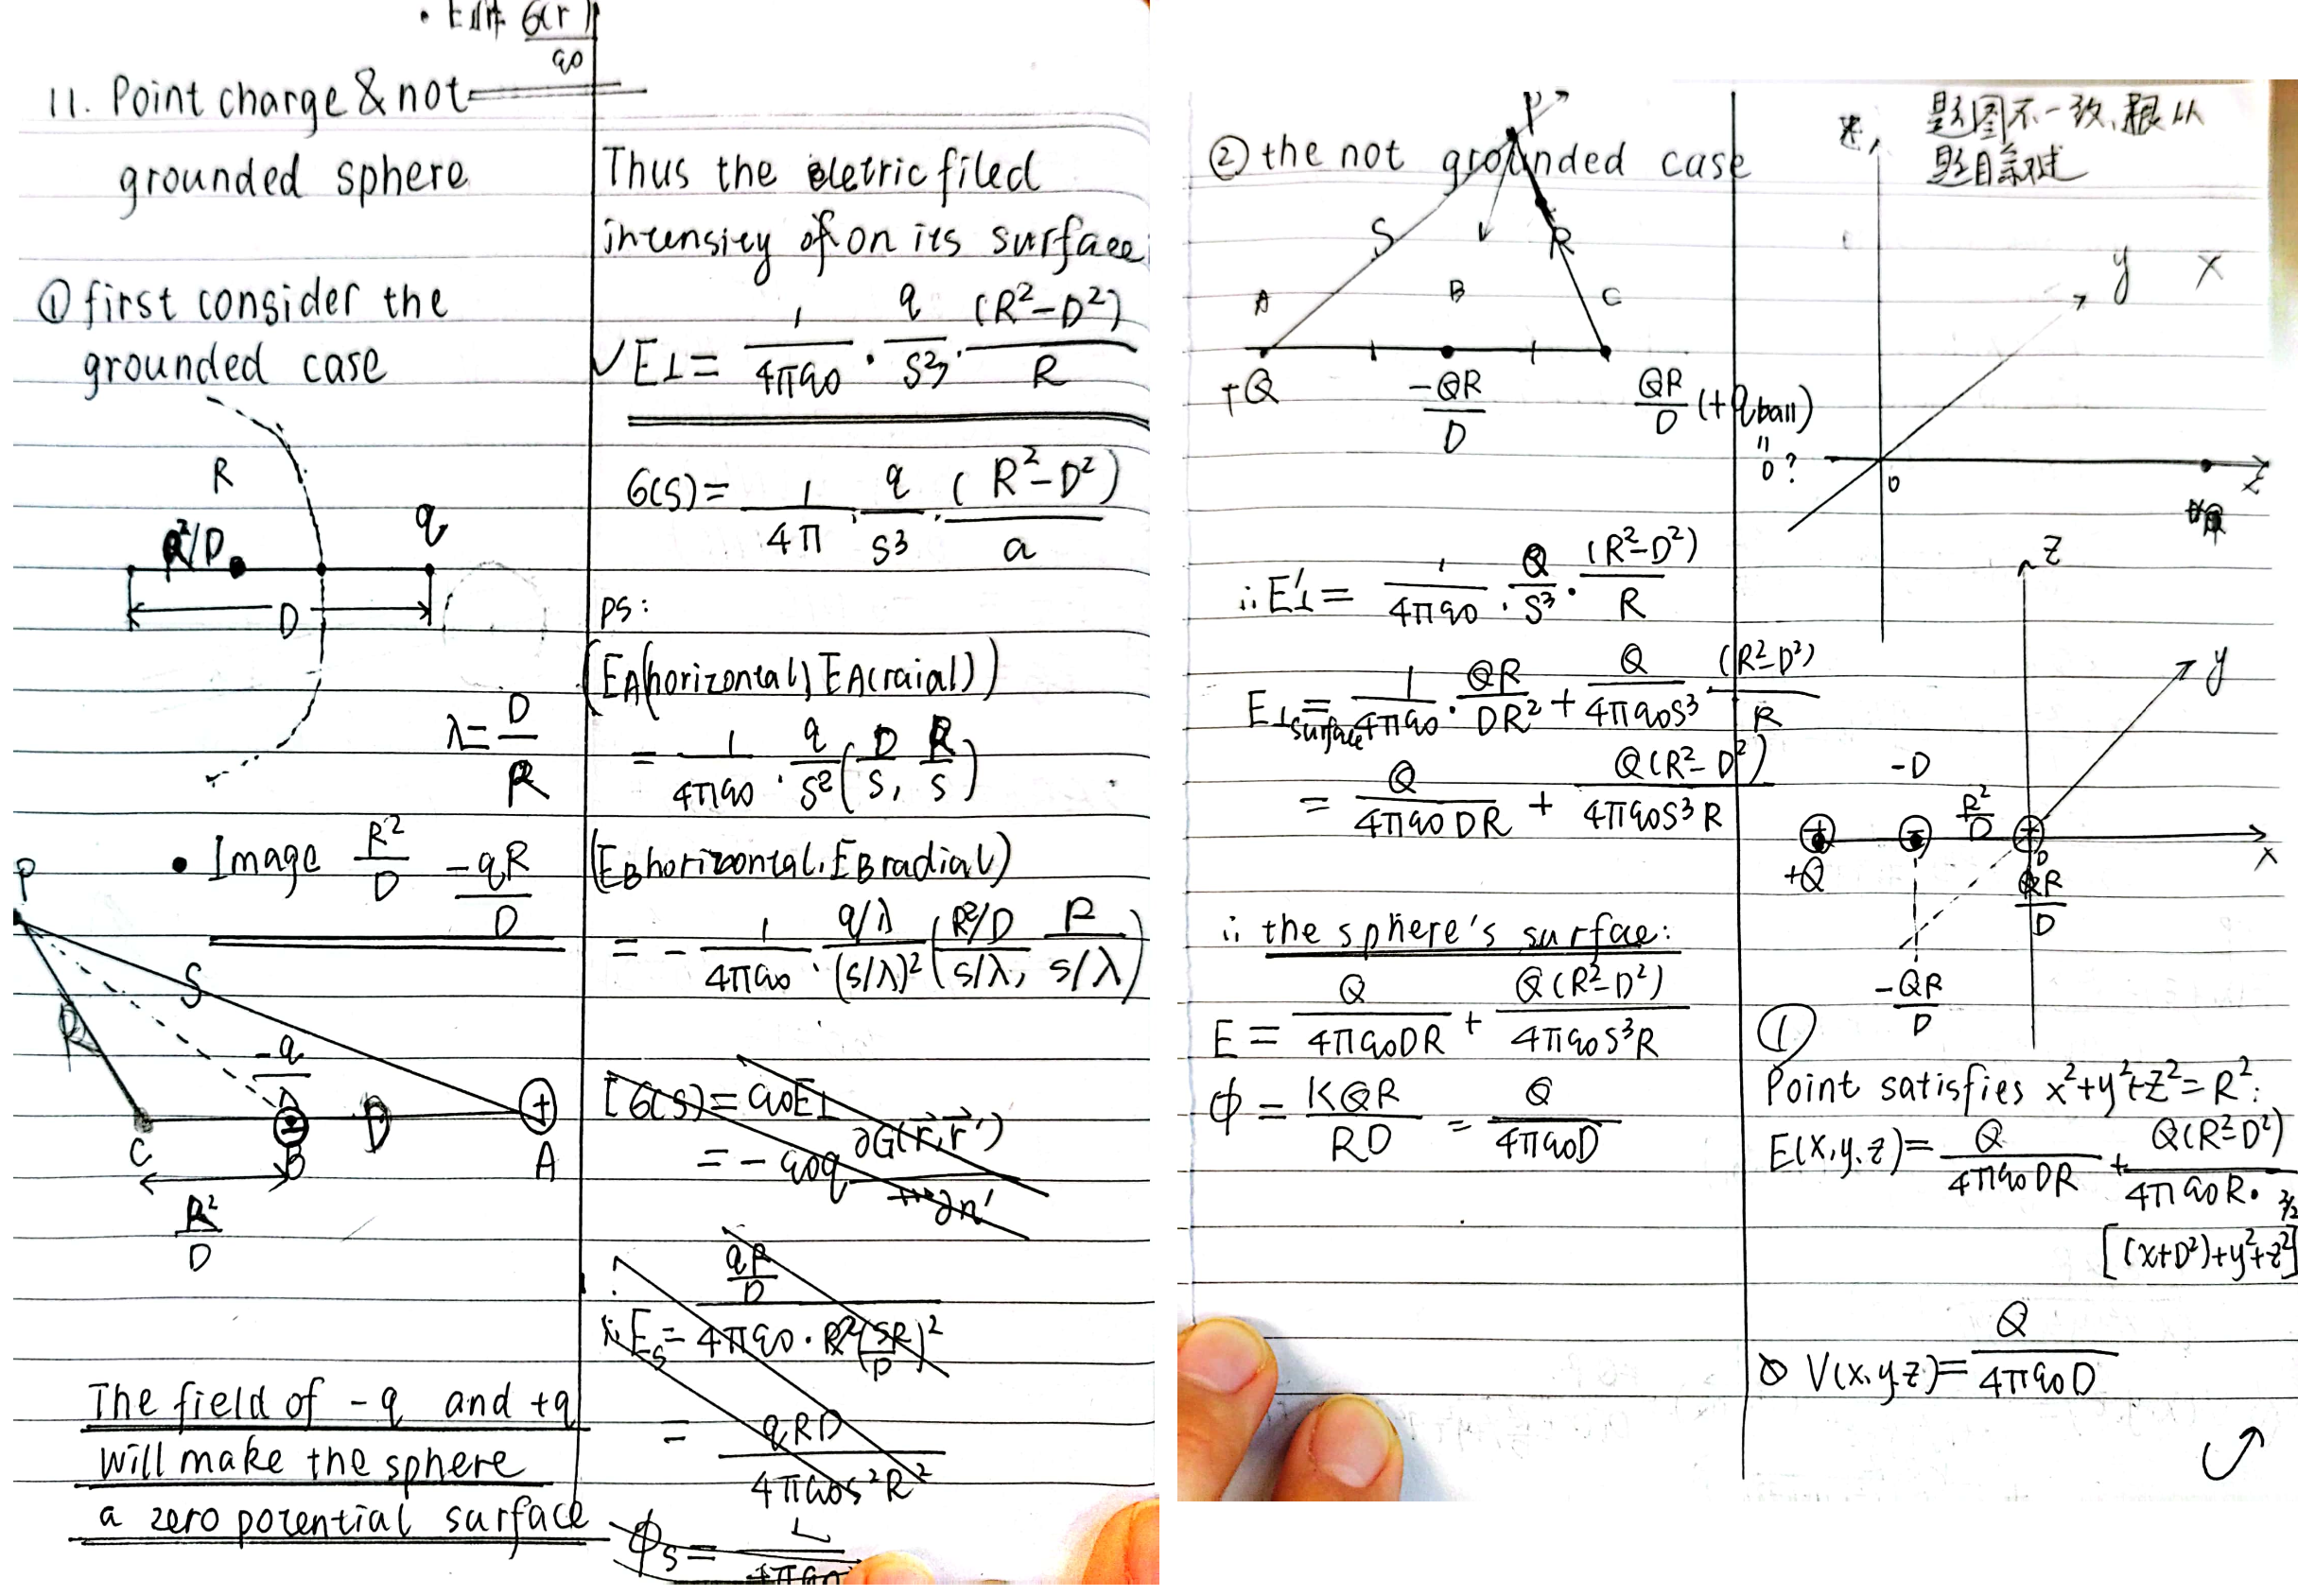 11. Point charge & not
grounded sphere
① first consider the
grounded case
R
R²/D
q
D
λ = D/R
• Image R²/D -qR/D
P
S
R
-q/λ
C
B
D
A
R²/D
The field of -q and +q
will make the sphere
a zero potential surface
Thus the eletric filed
intensity of on its surface
✓ E⊥ = 1/4πε0 · q/S³ · (R²-D²)/R
σ(S) = 1/4π · q/S³ · (R²-D²)/a
ps:
(EA(horizontal), EA(raial))
= 1/4πε0 · q/S² (D/S, R/S)
(EBhorizontal, EBradial)
= - 1/4πε0 · q/λ/(S/λ)² (R²/D/S/λ, R/S/λ)
[σ(S) = ε0E⊥
= - ε0q ∂G(r, r')/∂n'
∴ Es = qR/D/4πε0 · R²(SR/D)²
= qRD/4πε0S²R²
ϕs =
② the not grounded case
P
S
R
A
B
C
+Q
-QR/D
QR/D (+qball)
" 0 ?
∴ E'⊥ = 1/4πε0 · Q/S³ · (R²-D²)/R
E⊥surface = 1/4πε0 · QR/DR² + Q/4πε0S³ (R²-D²)/R
= Q/4πε0DR + Q(R²-D²)/4πε0S³R
∴ the sphere's surfae:
E = Q/4πε0DR + Q(R²-D²)/4πε0S³R
ϕ = KQR/RD = Q/4πε0D
题图不一致,根从
题目叙述
y
x
0
z
z
y
-D
R²/D
+Q
0
x
QR/D
-QR/D
①
Point satisfies x²+y²+z²=R²:
E(x,y,z) = Q/4πε0DR + Q(R²-D²)/4πε0R·
[(x+D²)+y²+z²]^3/2
V(x,y,z) = Q/4πε0D